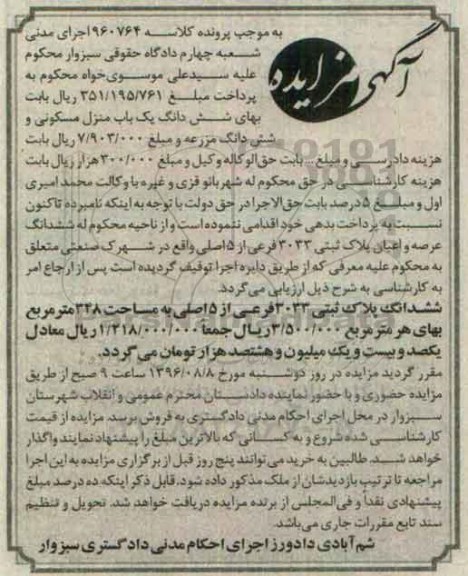 آگهی مزایده
به موجب پرونده کلاسه ۹۶۰۷۶۴ اجرای مدنی
شعبه چهارم دادگاه حقوقی سبزوار محکوم
علیه سیدعلی موسوی‌خواه محکوم به
پرداخت مبلغ ۳۵۱/۱۹۵/۷۶۱ ریال بابت
بهای شش دانگ یک باب منزل مسکونی و
شش دانگ مزرعه و مبلغ ۷/۹۰۳/۰۰۰ ریال بابت
هزینه دادرسی و مبلغ... بابت حق‌الوکاله وکیل و مبلغ ۳۰۰/۰۰۰ هزار ریال بابت
هزینه کارشناسی در حق محکوم له شهربانو قزی و غیره با وکالت محمد امیری
اول و مبلغ ۵ درصد بابت حق الاجرا در حق دولت با توجه به اینکه نامبرده تاکنون
نسبت به پرداخت بدهی خود اقدامی ننموده است و از ناحیه محکوم له ششدانگ
عرصه و اعیان پلاک ثبتی ۳۰۳۳ فرعی از ۵ اصلی واقع در شهرک صنعتی متعلق
به محکوم علیه معرفی که از طریق دایره اجرا توقیف گردیده است پس از ارجاع امر
به کارشناسی به شرح ذیل ارزیابی می‌گردد.
ششدانگ پلاک ثبتی ۳۰۳۳ فرعی از ۵ اصلی به مساحت ۳۴۸ متر مربع
بهای هر متر مربع ۳/۵۰۰/۰۰۰ ریال جمعاً ۱/۲۱۸/۰۰۰/۰۰۰ ریال معادل
یکصد و بیست و یک میلیون و هشتصد هزار تومان می گردد.
مقرر گردید مزایده در روز دوشنبه مورخ ۱۳۹۶/۰۸/۸ ساعت ۹ صبح از طریق
مزایده حضوری و با حضور نماینده دادستان محترم عمومی و انقلاب شهرستان
سبزوار در محل اجرای احکام مدنی دادگستری به فروش برسد. مزایده از قیمت
کارشناسی شده شروع و به کسانی که بالاترین مبلغ را پیشنهاد نمایند واگذار
خواهد شد. طالبین به خرید می توانند پنج روز قبل از برگزاری مزایده به این اجرا
مراجعه تا ترتیب بازدیدشان از ملک مذکور داده شود. قابل ذکر اینکه ده درصد مبلغ
پیشنهادی نقداً و فی‌المجلس از برنده مزایده دریافت خواهد شد. تحویل و تنظیم
سند تابع مقررات جاری می باشد.
شم‌آبادی دادورز اجرای احکام مدنی دادگستری سبزوار